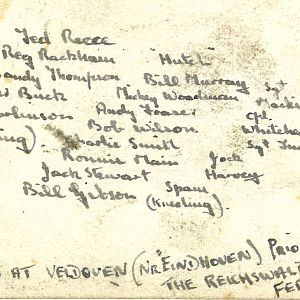 Ted Reece
Reg Rackham "Hutch"
andy Thompson Bill Murray Sgt
Buck Mickey Woodman Macki
ohnson Andy Fraser Cpl.
ing) Bob Wilson Whiteha
Charlie Smith Sgt
Ronnie Main Jock
Jack Stewart Harvey
Bill Gibson Spam
(Kneeling).
AT VELDOVEN (NR EINDHOVEN) PRIO
THE REICHSWAL
FE